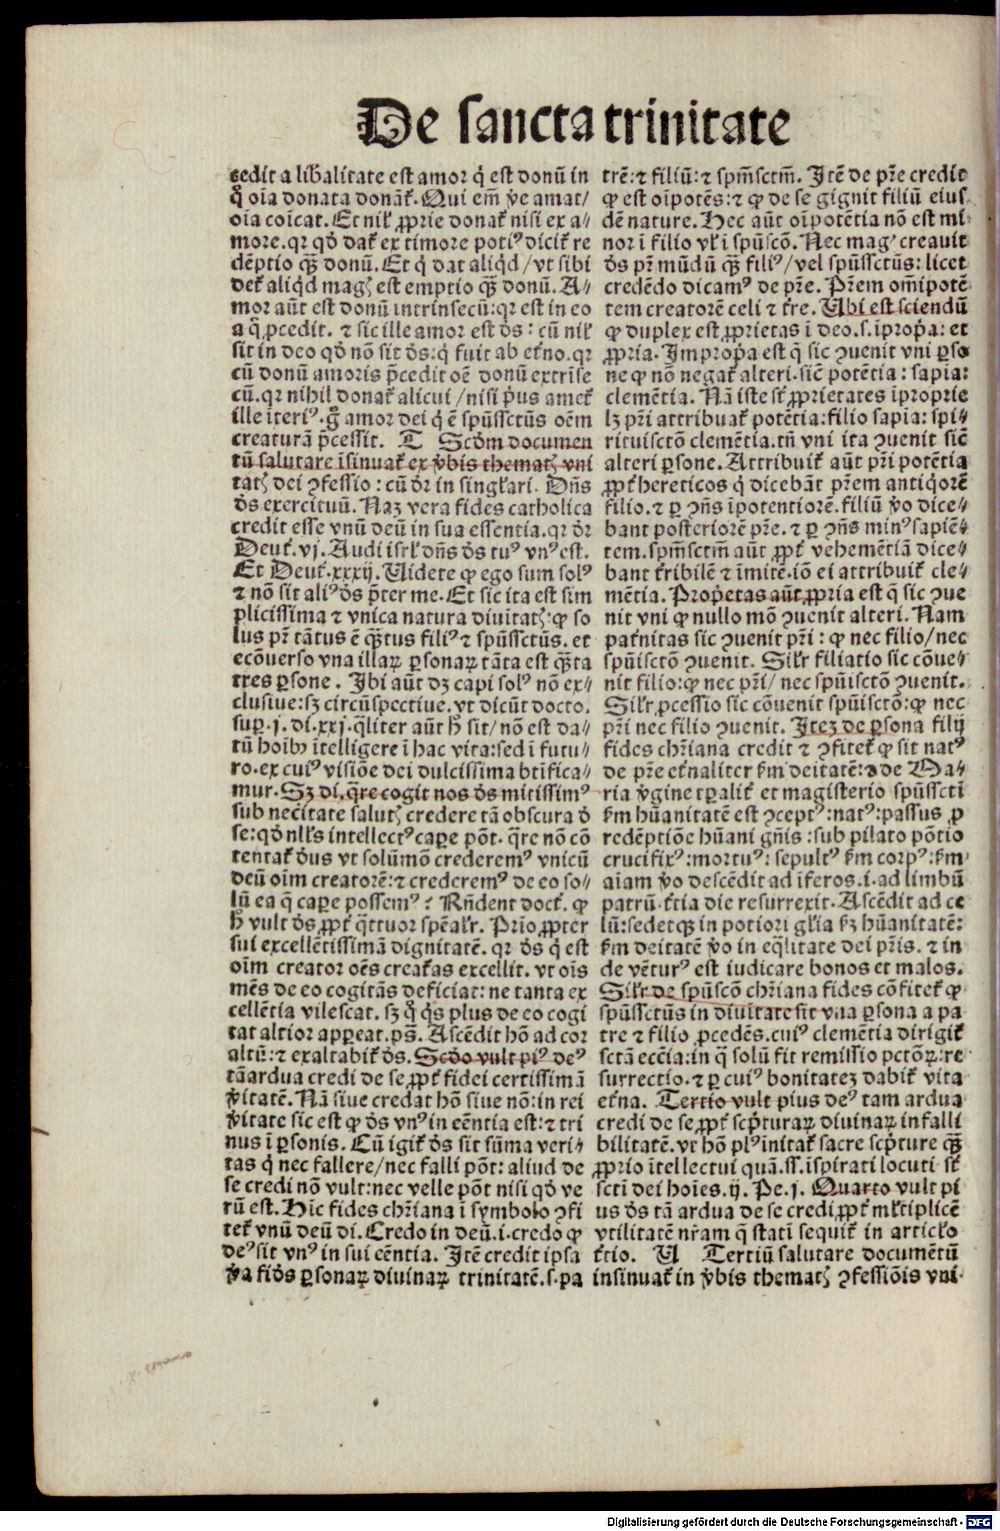 De sancta trinitate
cedit a libalitate est amor q̇ est donū in
q̊ oīa donata donāt᷑. Qui em̄ v̓e amat/
oīa coīcat. Et nil' ꝓprie donat᷑ nisi ex a⸗
more. qr qď dat᷑ ex timore poti⁹ dicit᷑ re
dēptio q̄ꝫ donū. Et q̇ dat aliq̇d/vt sibi
det᷑ aliq̇d mag̓ est emptio q̄ꝫ donū. A⸗
mor aūt est donū intrinsecū: qr est in eo
a q̊ ꝓcedit. ⁊ sic ille amor est ďs: cū nil'
sit in deo qď nō sit ďs: q̇ fuit ab et̓no. qr
cū donū amoris p̄cedit oē donū extrīse
cū. qr nihil donat᷑ alicui/nisi p̓us amet᷑
ille iteri⁹. g̊ amor dei q̇ ē spūssctūs oēm
creaturā p̄cessit. T Scďm documen
tū salutare īsinuat᷑ ex v̓bis themat̓ vni
tat̓ dei ꝯfessio: cū ďr in singl'ari. Dn̄s
ďs exercituū. Naꝫ vera fides catholica
credit esse vnū deū in sua essentia. qr ďr
Deut̓. vj. Audi isrl' dn̄s ďs tu⁹ vn⁹ est.
Et Deut̓. xxxij. Videte ꝙ ego sum sol⁹
⁊ nō sit ali⁹ ďs p̄ter me. Et sic ita est sim
plicissima ⁊ vnica natura diuītat̓: ꝙ so
lus pr̄ tātus ē q̄ꝫtus fili⁹ ⁊ spūssctūs. et
ecōuerso vna illaꝝ ꝑsonaꝝ tāta est q̄ꝫta
tres ꝑsone. Ibi aūt dꝫ capi sol⁹ nō ex⸗
clusiue: sꝫ circūspectiue. vt dicūt docto.
suꝑ. j. di. xxj. q̄liter aūt h̄ sit/nō est da⸗
tū hoīb⁹ ītelligere ī hac vita: sed ī futu⸗
ro. ex cui⁹ visiōe dei dulcissima btīfica⸗
mur. Sꝫ di. q̄re cogit nos ďs mitissim⁹
sub necītate salut̓ credere tā obscura ď
se: qď nll's intellect⁹ caꝑe pōt. q̄re nō cō
tentat᷑ ďus vt solūmō crederem⁹ vnicū
deū oīm creatorē: ⁊ crederem⁹ de eo so⸗
lū ea q̄ caꝑe possem⁹? Rn̄dent doct᷑. ꝙ
h̄ vult ďs ꝓpt̓ q̄ttuor spēal'r. Prīo ꝓpter
sui excellētissimā dignitatē. qr ďs q̇ est
oīm creator oēs creat̓as excellit. vt oīs
mēs de eo cogitās deficiat: ne tanta ex
cellētia vilescat. sꝫ q̊ q̇s plus de eo cogi
tat altior apꝑeat. ps̄. Ascēdit hō ad cor
altū: ⁊ exaltabit᷑ ďs. Scďo vult pi⁹ de⁹
tā ardua credi de se ꝓpt̓ fidei certissimā
v̓itatē. Nā siue credat hō siue nō: in rei
v̓itate sic est ꝙ ďs vn⁹ in eēntia est: ⁊ tri
nus ī ꝑsonis. Cū igit᷑ ďs sit sūma veri⸗
tas q̇ nec fallere/nec falli pōt: aliud de
se credi nō vult: nec velle pōt nisi qď ve
rū est. Hīc fides chr̄iana ī symbolo ꝯfi
tet᷑ vnū deū di. Credo in deū. i. credo ꝙ
de⁹ sit vn⁹ in sui eēntia. Itē credit ipsa
v̓a fiďs ꝑsonaꝝ diuinaꝝ trinitatē. s. pa
trē: ⁊ filiū: ⁊ spm̄sctm̄. Itē de pr̄e credit
ꝙ est oīpotēs: ⁊ ꝙ de se gignit filiū eius
dē nature. Hec aūt oīpotētia nō est mi⸗
nor ī filio vl' ī spūscō. Nec mag̓ creauit
ďs pr̄ mūdū q̄ꝫ fili⁹/vel spūssctūs: licet
credēdo dicam⁹ de pr̄e. Pr̄em om̄ipotē⸗
tem creatorē celi ⁊ t̓re. Ubi est sciendū
ꝙ duplex est ꝓprietas ī deo. s. īprop̓a: et
ꝓpria. Improp̓a est q̄ sic ꝯuenit vni ꝑso
ne ꝙ nō negat᷑ alteri. sicē potētia: sapīa:
clemētia. Nā iste st̓ ꝓprietates īproprie
lꝫ pr̄i attribuat᷑ potētia: filio sapīa: spi⸗
rituisctō clemētia. tn̄ vni ita ꝯuenit sicē
alteri ꝑsone. Attribuit᷑ aūt pr̄i potētia
ꝓpt̓ hereticos q̇ dicebāt pr̄em antiq̇orē
filio. ⁊ ꝑ ꝯn̄s īpotentiorē. filiū v̓o dice⸗
bant posteriorē pr̄e. ⁊ ꝑ ꝯn̄s min⁹ sapiē⸗
tem. spm̄sctm̄ aūt ꝓpt̓ vehemētiā dice⸗
bant t̓ribilē ⁊ īmitē. iō ei attribuit᷑ cle⸗
mētia. Prop̓etas aūt ꝓpria est q̄ sic ꝯue
nit vni ꝙ nullo mō ꝯuenit alteri. Nam
pat̓nitas sic ꝯuenit pr̄i: ꝙ nec filio/nec
spūisctō ꝯuenit. Sil'r filiatio sic cōue⸗
nit filio: ꝙ nec pr̄i/nec spūisctō ꝯuenit.
Sil'r ꝓcessio sic cōuenit spūisctō: ꝙ nec
pr̄i nec filio ꝯuenit. Iteꝫ de ꝑsona filij
fides chr̄iana credit ⁊ ꝯfitet᷑ ꝙ sit nat⁹
de pr̄e et̓naliter ẜm deitatē: ⁊ de Ma⸗
ria v̓gine tꝑalit᷑ et magisterio spūsscti
ẜm hūanitatē est ꝯcept⁹: nat⁹: passus ꝓ
redēptiōe hūani gn̄is: sub pilato pōtio
crucifix⁹: mortu⁹: sepult⁹ ẜm corp⁹: ẜm
aīam v̓o descēdit ad īferos. i. ad limbū
patrū. t̓tia die resurrexit. Ascēdit ad ce
lū: sedetqꝫ in potiori gl'ia ẜꝫ hūanitatē:
ẜm deitatē v̓o in eq̄litate dei pr̄is. ⁊ in
de vētur⁹ est iudicare bonos et malos.
Sil'r de spūscō chr̄iana fides cōfitet᷑ ꝙ
spūssctūs in diuītate sit vna ꝑsona a pa
tre ⁊ filio ꝓcedēs. cui⁹ clemētia dirigit᷑
sctā eccīa: in q̄ solū fit remissio pctōꝝ: re
surrectio. ⁊ ꝑ cui⁹ bonitateꝫ dabit᷑ vita
et̓na. Tertio vult pius de⁹ tam ardua
credi de se ꝓpt̓ scp̓turaꝝ diuinaꝝ infalli
bilitatē. vt hō pl⁹ initat᷑ sacre scp̓ture q̄ꝫ
ꝓprio ītellectui quā. ss. īspirati locuti st̓
scti dei hoīes. ij. Pe. j. Quarto vult pi
us ďs tā ardua de se credi ꝓpt̓ ml'tiplicē
vtilitatē nr̄am q̄ statī sequit᷑ in articl'o
t̓tio. U Tertiū salutare documētū
insinuat᷑ in v̓bis themat̓ ꝯfessiōis vni⸗
Digitalisierung gefördert durch die Deutsche Forschungsgemeinschaft - DFG